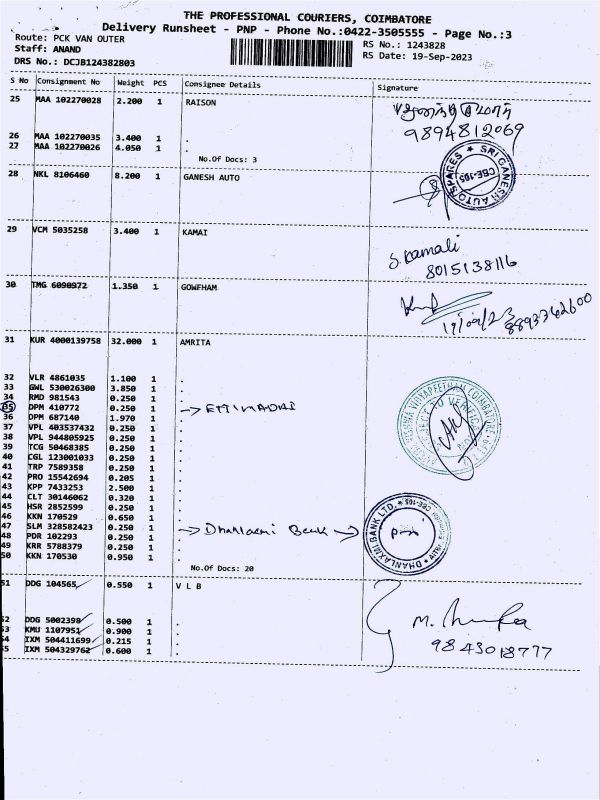 THE PROFESSIONAL COURIERS, COIMBATORE
Delivery Runsheet - PNP - Phone No.:0422-3505555 - Page No.:3
Route: PCK VAN OUTER
RS No.: 1243828
Staff: ANAND
RS Date: 19-Sep-2023
DRS No.: DCJB124382803
S No Consignment No Weight PCS Consignee Details Signature
25 MAA 102270028 2.200 1 RAISON
9894812069
26 MAA 102270035 3.400 1 .
27 MAA 102270026 4.050 1 .
No.Of Docs: 3
28 NKL 8106460 8.200 1 GANESH AUTO
SRI GANESH AUTO SPARES
CBE-105
29 VCM 5035258 3.400 1 KAMAI
S. Kamali
8015138116
30 TMG 6090972 1.350 1 GOWFHAM
19/09/23
8893762600
31 KUR 4000139758 32.000 1 AMRITA
32 VLR 4861035 1.100 1 .
33 GWL 530026300 3.850 1 .
34 RMD 981543 0.250 1 .
35 DPM 410772 0.250 1 → ETTIMADAI
36 DPM 687140 1.970 1 .
37 VPL 403537432 0.250 1 .
38 VPL 944805925 0.250 1 .
39 TCG 50468385 0.250 1 .
40 CGL 123001033 0.250 1 .
41 TRP 7589358 0.250 1 .
42 PRO 15542694 0.205 1 .
43 KPP 7433253 2.500 1 .
44 CLT 30146062 0.320 1 .
45 HSR 2852599 0.250 1 .
46 KKN 170529 0.650 1 .
47 SLM 328582423 0.250 1 → Dhanlaxmi Bank →
48 PDR 102293 0.250 1 .
49 KRR 5788379 0.250 1 .
50 KKN 170530 0.950 1 .
No.Of Docs: 20
DHANLAXMI BANK LTD.
51 DDG 104565 0.550 1 V L B
52 DDG 5002398 0.500 1 .
53 KMU 1107951 0.900 1 .
54 IXM 504411699 0.215 1 .
55 IXM 504329762 0.600 1 .
9843018777